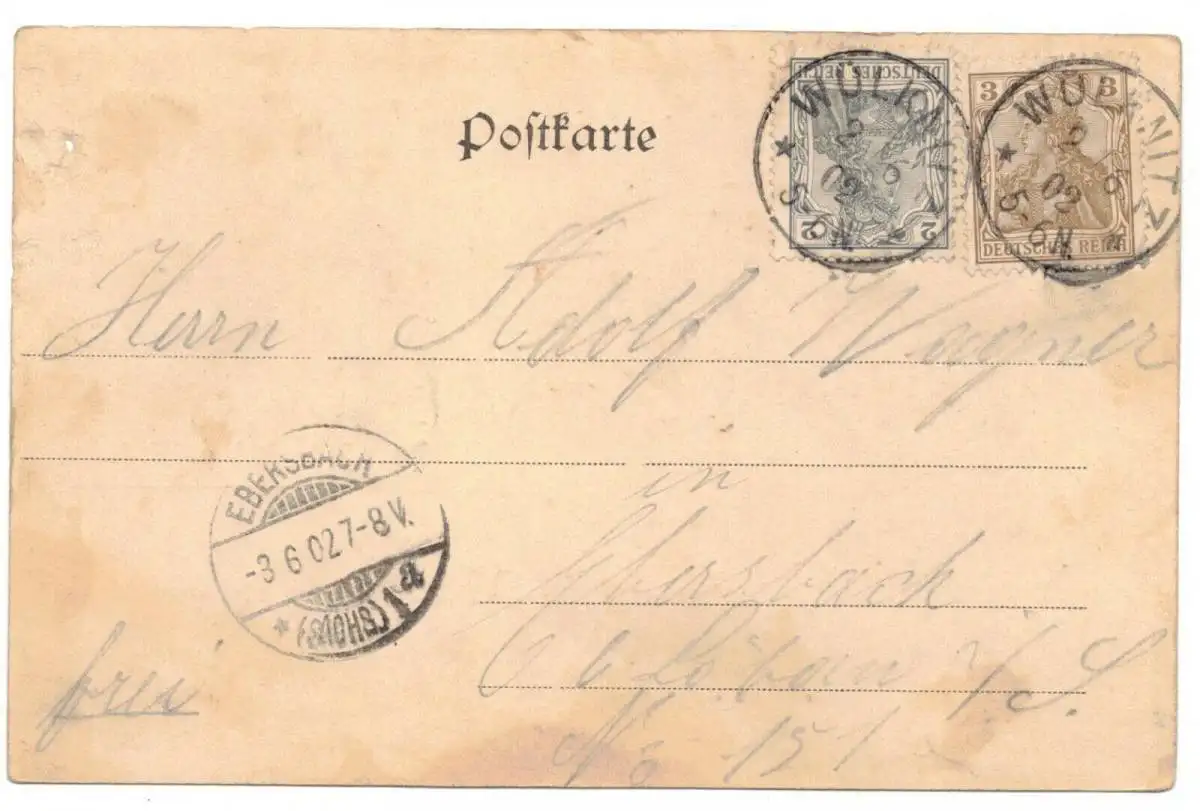 Postkarte
DEUTSCHES REICH
2 2
3 3
DEUTSCHES REICH
WÜLKNITZ
2 6 02
5-6N
WÜLKNITZ
2 6 02
5-6N.
Herrn Adolf Wagner
in
Ebersbach
Löbau i/S.
No 151
frei
EBERSBACH
-3 6 02 7-8 V.